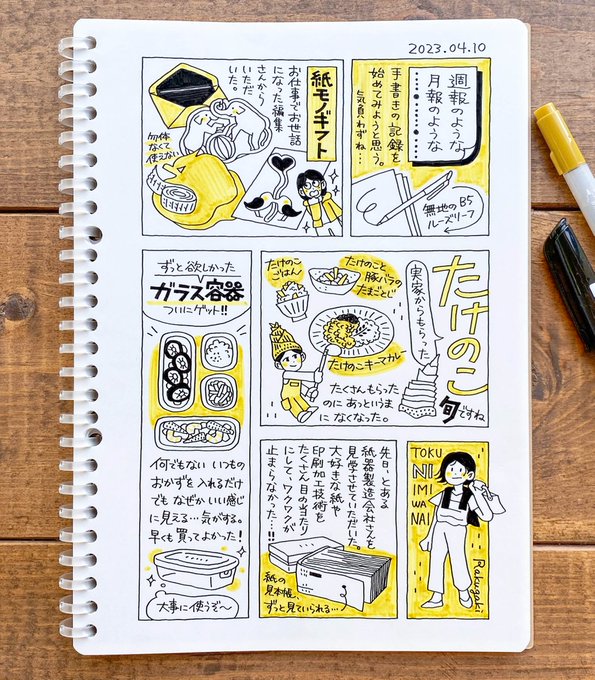 2023.04.10
週報のような
月報のような
手書きの記録を
始めてみようと思う。
気負わずね…
無地のB5
ルーズリーフ
紙モノギフト
お仕事でお世話
になった編集
さんから
いただ
いた。
勿体
なくて
使えない
ずっと欲しかった
ガラス容器
ついにゲット!!
何でもない いつもの
おかずを 入れるだけ
でも なぜか いい感じ
に見える…気がする。
早くも買ってよかった!
大事に使うぞ〜
たけのこ
旬ですね
実家からもらった
たけのこと
豚バラの
たまごとじ
たけのこ
ごはん
たけのこキーマカレー
たくさんもらった
のに あっというま
に なくなった。
先日、とある
紙器製造会社さんを
見学させていただいた。
大好きな紙や
印刷加工技術を
たくさん目の当たり
にして、ワクワクが
止まらなかった…!!
紙の
見本帳、
ずっと見ていられる…
TOKU
NI
IMI
WA
NAI
Rakugaki